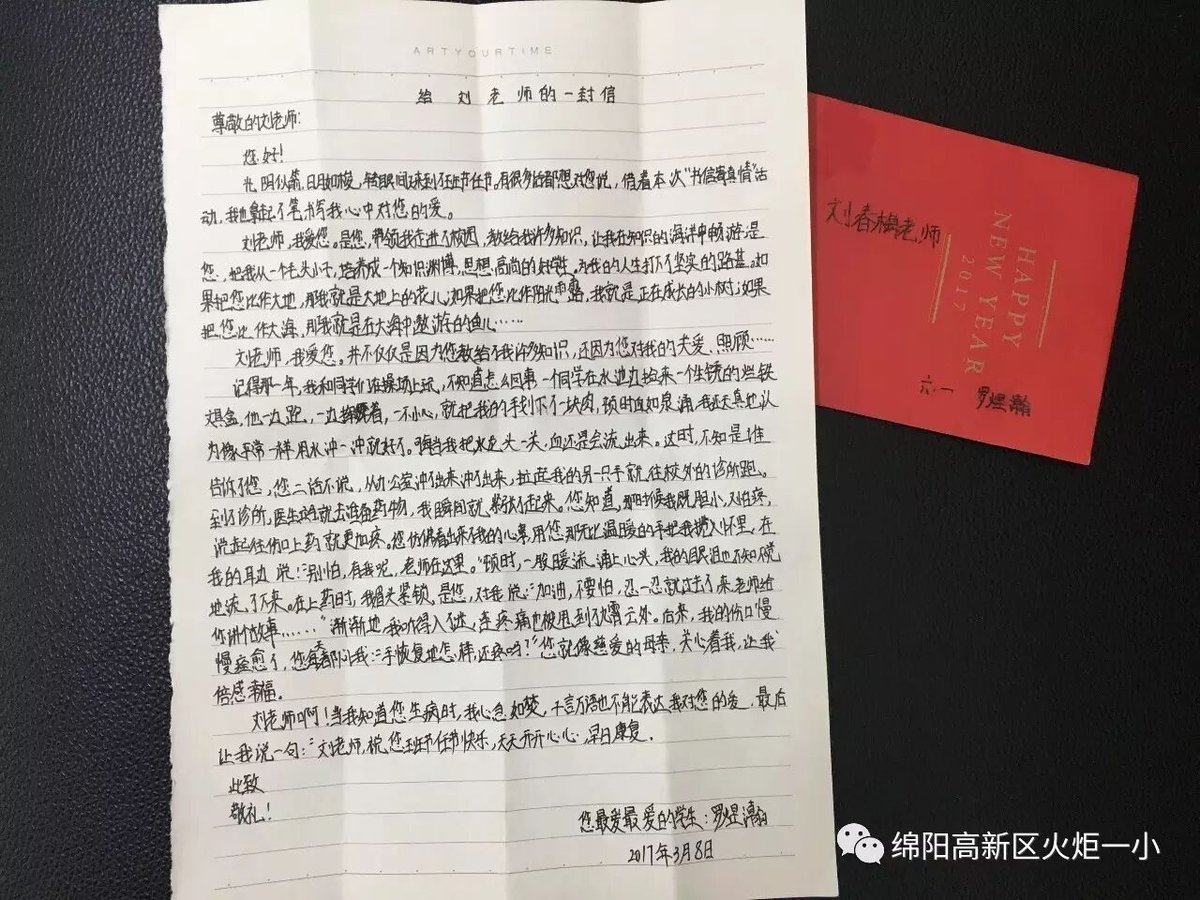 ARTYOURTIME
给刘老师的一封信
尊敬的刘老师:
您好!
光阴似箭,日月如梭,转眼间又来到了班节任节。有很多话都想对您说,借着本次“书信寄真情”活
动,我也拿起了笔书写我心中对您的爱。
刘老师,我爱您。是您,带领我走进了校园,教给我许多知识,让我在知识的海洋中畅游;是
您,把我从一个毛头小子,培养成一个知识渊博,思想高尚的好学生。为我的人生打下了坚实的路基。如
果把您比作大地,那我就是大地上的花儿;如果把您比作阳光雨露,我就是正在成长的小树;如果
把您比作大海,那我就是在大海中遨游的鱼儿……
刘老师,我爱您。并不仅仅是因为您教给了我许多知识,还因为您对我的关爱、照顾……
记得那一年,我和同学们在操场上玩,不知道怎么回事一个同学在水池边捡来一个生锈的烂铁
棋盒,他一边跑,一边挥舞着,一不小心,就把我的手划下了一块肉,顿时血如泉涌,我还天真地认
为像平常一样用水冲一冲就好了。每当我把水龙头一关,血还是会流出来。这时,不知是谁
告诉了您,您二话不说,从办公室冲了出来冲了出来,拉起我的另一只手就往校外的诊所跑。
到了诊所,医生就去准备药物,我瞬间就紧张了起来。您知道,那时候我既胆小,又怕疼,
说起往伤口上药就更加疼。您仿佛看出来了我的心事,用您那无比温暖的手把我揽入怀里,在
我的耳边说:“别怕,有我呢,老师在这里。”顿时,一股暖流涌上心头,我的眼泪也不知不觉
地流了下来。在上药时,我眉头紧锁,是您,对我说:“加油,不要怕,忍一忍就过去了来老师给
你讲个故事……”渐渐地,我听得入了迷,连疼痛也被甩到了九霄云外。后来,我的伤口慢
慢痊愈了,您每天都问我:“手恢复地怎样,还疼吗?”您就像慈爱的母亲,关心着我,让我
倍感幸福。
刘老师啊!当我知道您生病时,我心急如焚,千言万语也不能表达我对您的爱,最后
让我说一句:“刘老师,祝您班节任节快乐,天天开开心心,早日康复.
此致
敬礼!
您最爱最爱的学生:罗煜瀚
2017年3月8日
刘春梅老师
HAPPY
NEW YEAR
2017
六.一 罗煜瀚
绵阳高新区火炬一小